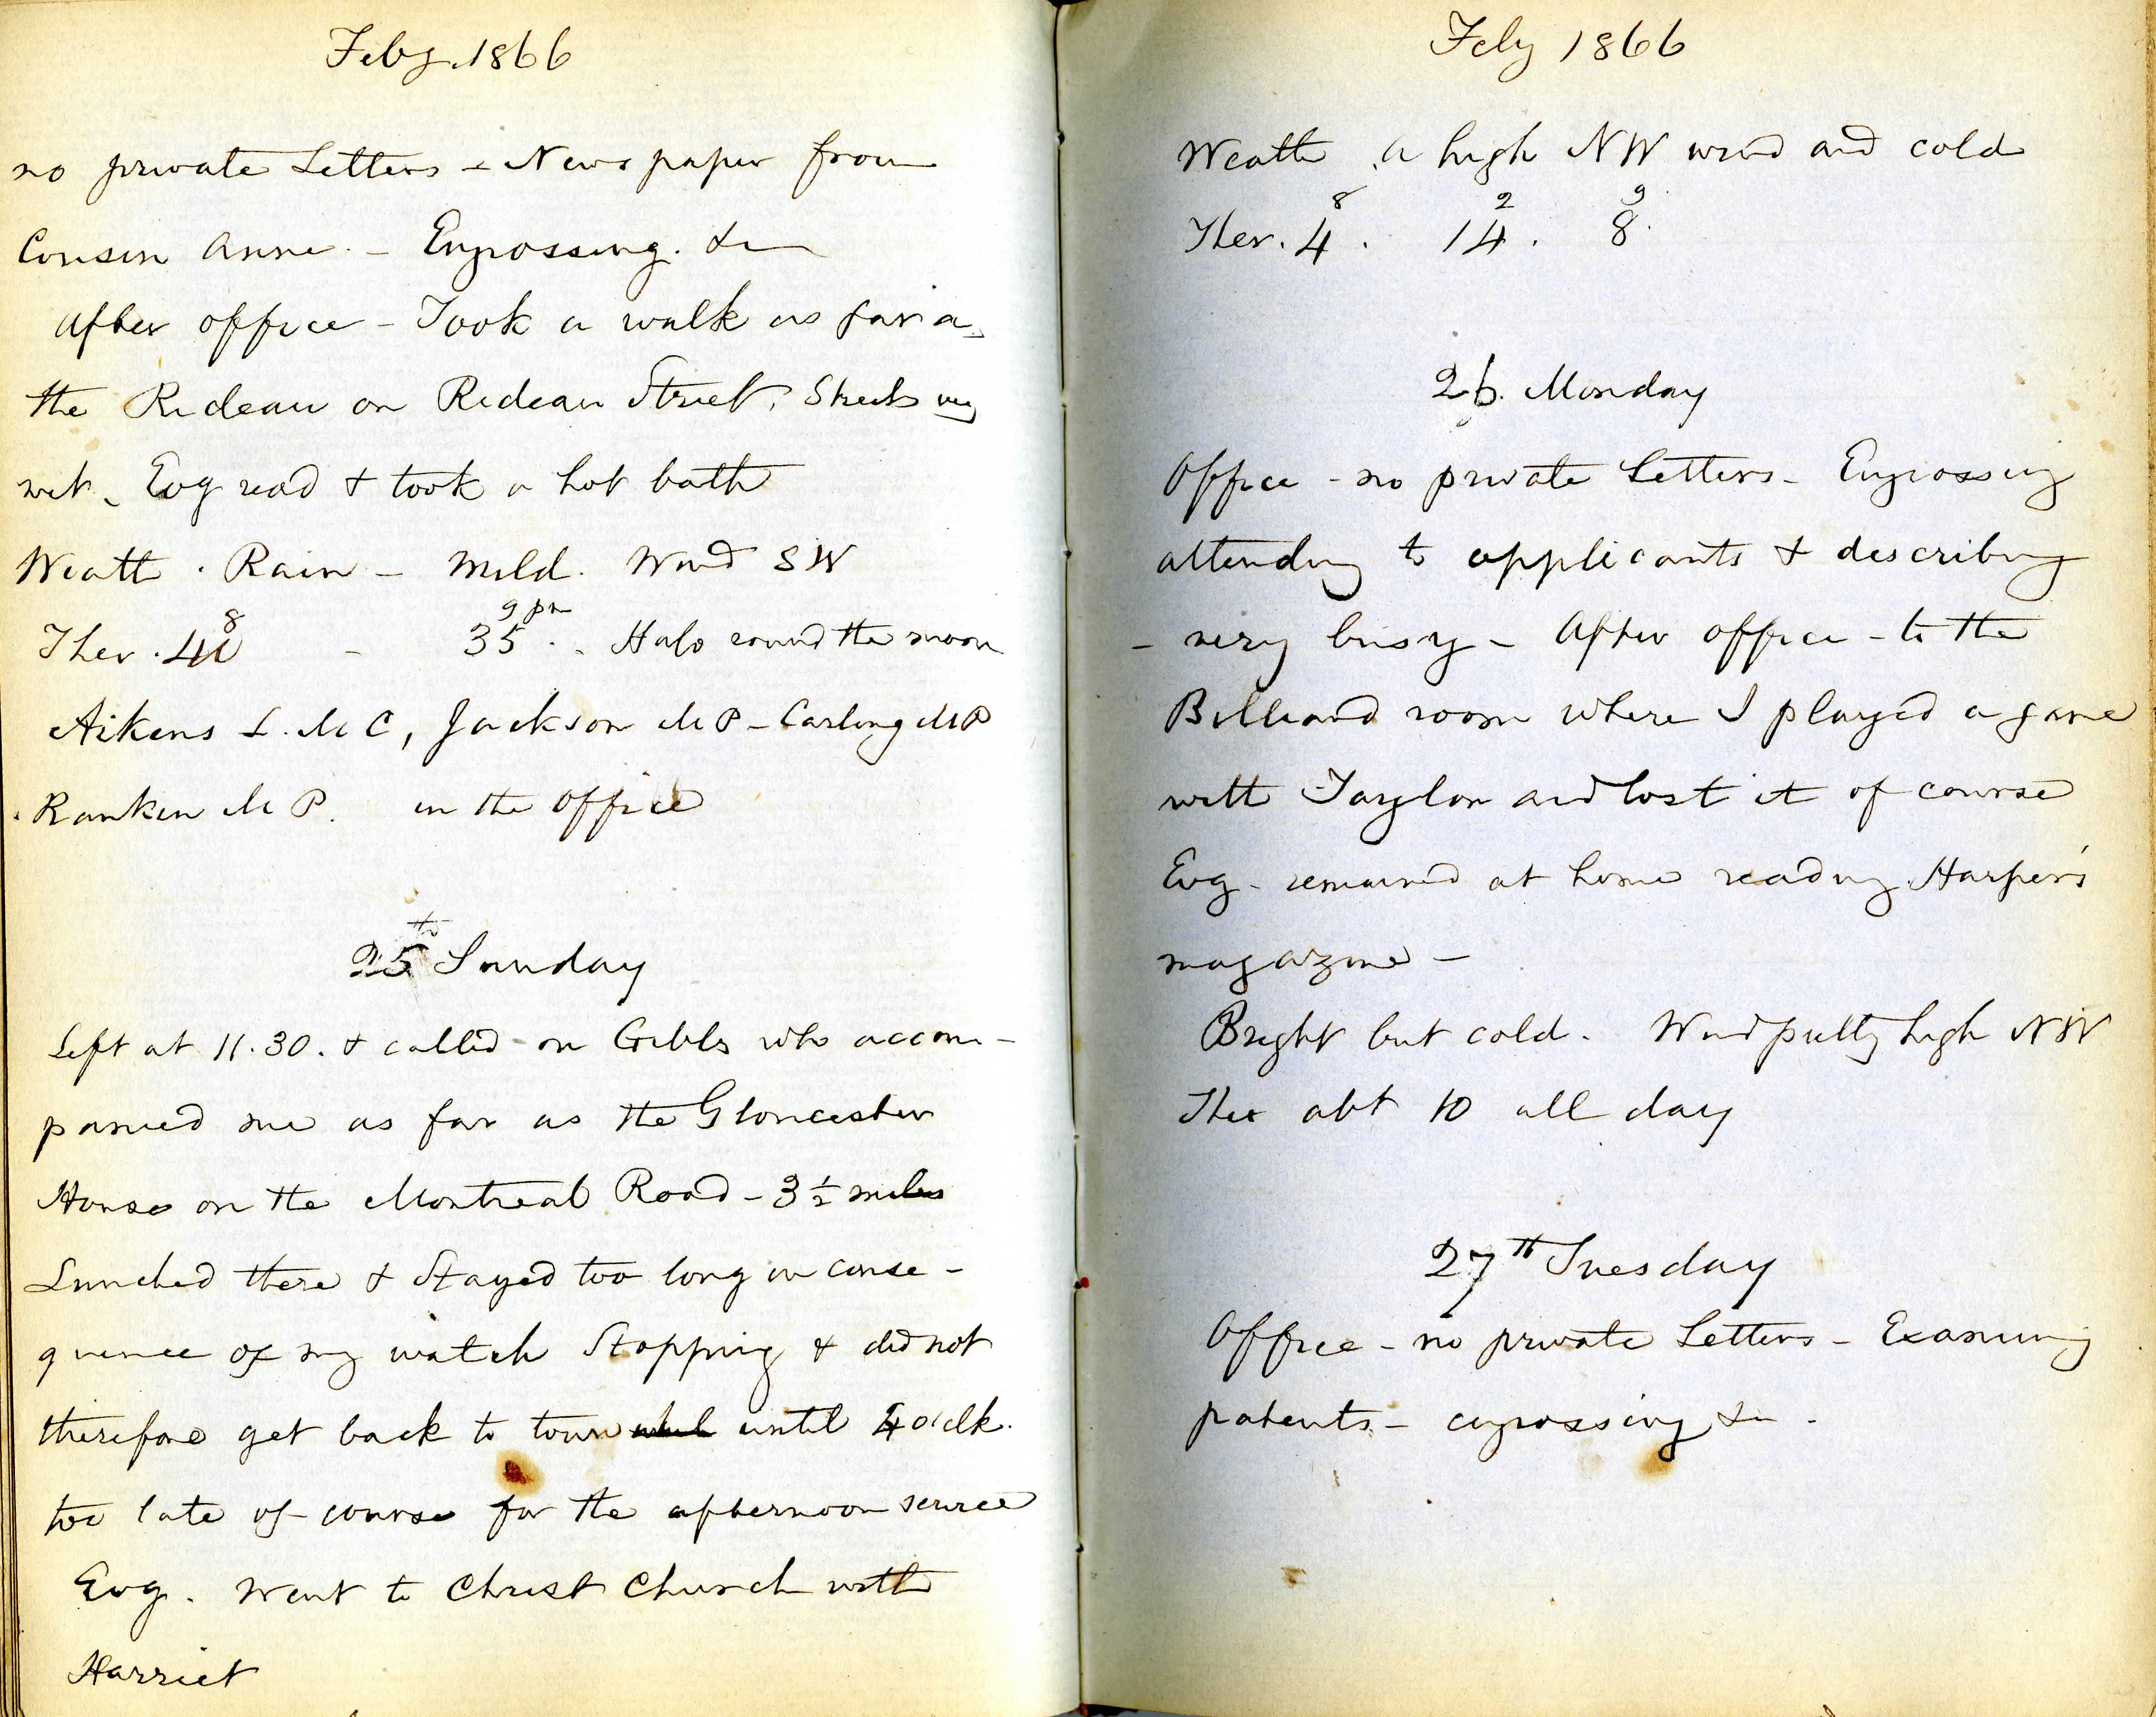 Feby. 1866
no private Letters - Newspaper from
Cousin Anne - Engrossing. &c
After office - Took a walk as far as
the Rideau on Rideau Street, Streets very
wet. Evg read & took a hot bath
Weath . Rain - Mild. Wind SW
8 9 pm
Ther. 40 - 35 . . Halo round the moon
Aikens L. M C, Jackson M P - Carling M P
Rankin M P. in the office
25th Sunday
Left at 11.30. & called on Gibbs who accom-
panied me as far as the Gloucester
House on the Montreal Road - 3 1/2 miles
Lunched there & Stayed too long in conse-
quence of my watch Stopping & did not
therefore get back to town until 4 oclk.
too late of course for the afternoon service
Evg. Went to Christ Church with
Harriet
Feby 1866
Weath . a high NW wind and cold
8 2 9
Ther. 4 . 14 . 8.
26. Monday
Office - no private Letters - Engrossing
attending to applicants & describing
- very busy - After office - to the
Billiard room where I played a game
with Taylor and lost it of course
Evg - remained at home reading Harper's
magazine -
Bright but cold. Wind pretty high NW
Ther abt 10 all day
27th Tuesday
Office - no private Letters - Examining
patents - engrossing &c -